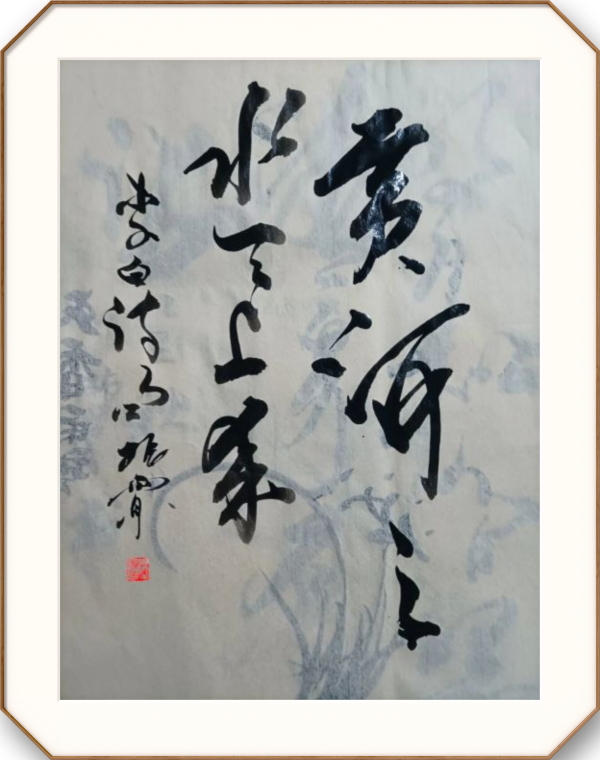 黄河之
水天上来
李白诗句振霄